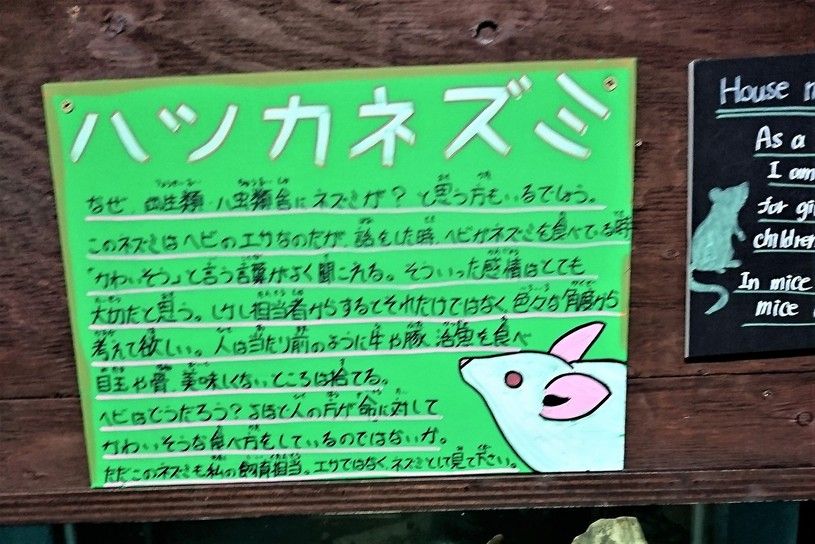 ハツカネズミ
なぜ、両生類・ハ虫類舎にネズミが？と思う方もいるでしょう。
このネズミはヘビのエサなのだが、話をした時、ヘビがネズミを食べている時
「かわいそう」と言う言葉がよく聞こえる。そういった感情はとても
大切だと思う。しかし担当者からするとそれだけではなく色々な角度から
考えて欲しい。人は当たり前のように牛や豚、魚を食べ
目玉や骨、美味しくないところは捨てる。
ヘビはどうだろう？よほど人の方が命に対して
かわいそうな食べ方をしているのではないか。
ただこのネズミも私の飼育担当。エサではなく、ネズミとして見て下さい。
House
As a
I am
for
children
In mice
mice